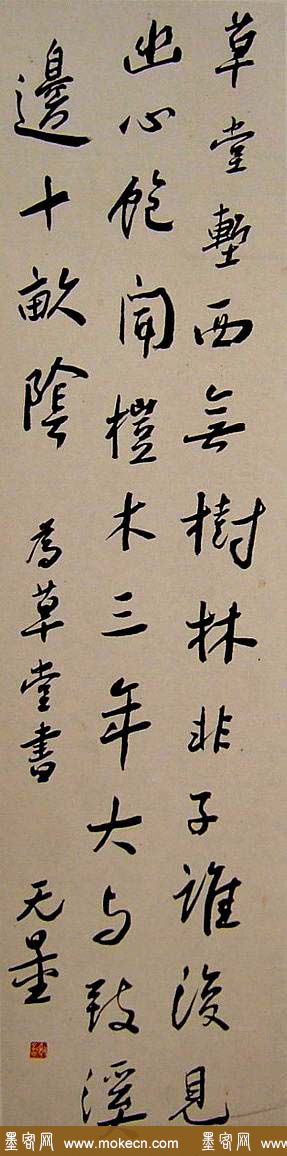 草堂塹西無樹林非子誰復見
幽心飽聞榿木三年大与致溪
邊十畝陰
為草堂書 无量
墨客网 www.mokecn.com 墨客网